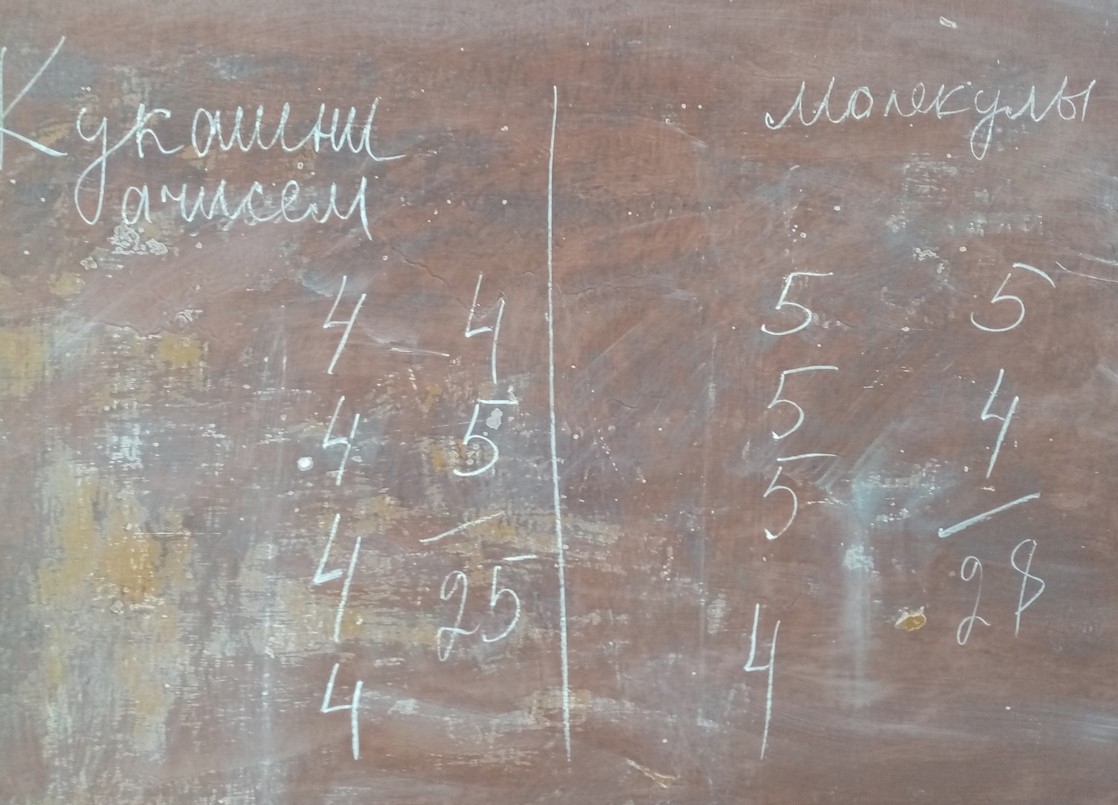 Кукашни
ачисем
4 4
4 5
4 25
4
молекулы
5 5
5 4
5 28
4